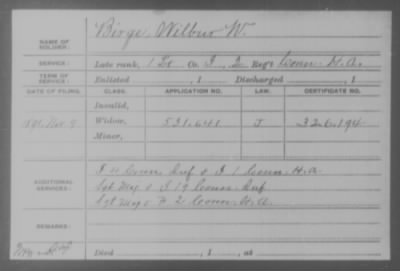 Birge, Wilbur W.
NAME OF SOLDIER:
SERVICE: Late rank, 1 Lt Co. I, 2 Reg't Conn. H.A.
TERM OF SERVICE: Enlisted , 1 Discharged , 1
DATE OF FILING. CLASS. APPLICATION NO. LAW. CERTIFICATE NO.
Invalid,
Nov. 9 Widow, 531.641 J 326.194
Minor,
ADDITIONAL SERVICES:
Conn. Inf & I 1 Conn. H.A
Sgt Maj & I 19 Conn. Inf
Sgt Maj & 2 Conn. H.A.
REMARKS:
Died , 1 , at